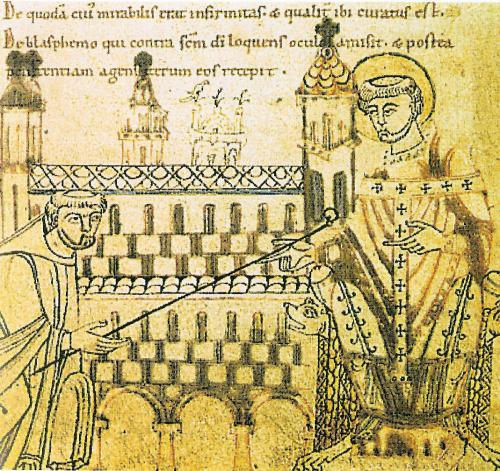 De quodā cui' mirabilis erat infirmitas. & qualit ibi curatus est.
De blasphemo qui contra scm̄ di loquens oculos amisit. & postea
penitentiam agens iterum eos recepit.